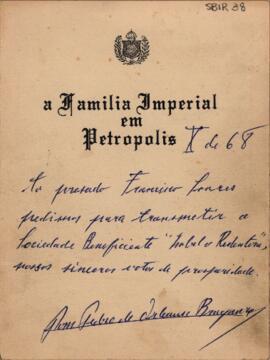 SBIR 38
a Familia Imperial
em
Petropolis
X de 68
Ao presado Francisco
pedimos para transmetir a
Sociedade Beneficiente "Isabel a Redentora",
nossos sinceros votos de prosperidade.
Dom Pedro de Orleans e Bragança